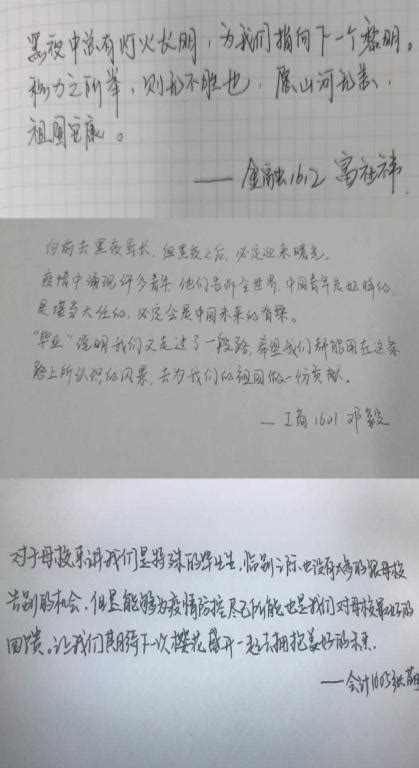 黑夜中总有灯火长明，为我们指向下一个黎明。
积力之所举，则无不胜也，愿山河无恙，
祖国安康。
——金融1612 高社祎
向前去黑夜虽长，但黑夜之后，必定迎来曙光。
疫情中涌现许多青年，他们告诉全世界，中国青年是好样的，
是堪当大任的，必定会是中国未来的脊梁。
“毕业”说明我们又走过了一段路，希望我们都能用在这条
路上所认识的风景，去为我们的祖国做一份贡献。
—工商1601 邓毅
对于母校来讲我们是特殊的毕业生，临别之际也没有太多的跟母校
告别的机会，但是能够为疫情防控尽己所能也是我们对母校最好的
回馈。让我们期待下一次樱花盛开一起去拥抱美好的未来。
——会计1605张